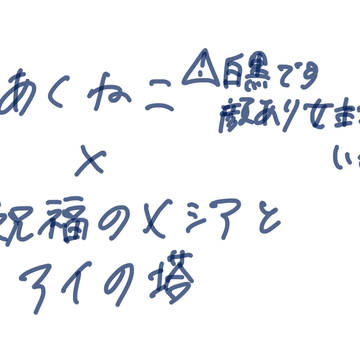 あくねこ
⚠白黒です
顔あり女主
い
×
祝福のメシアと
アイの塔